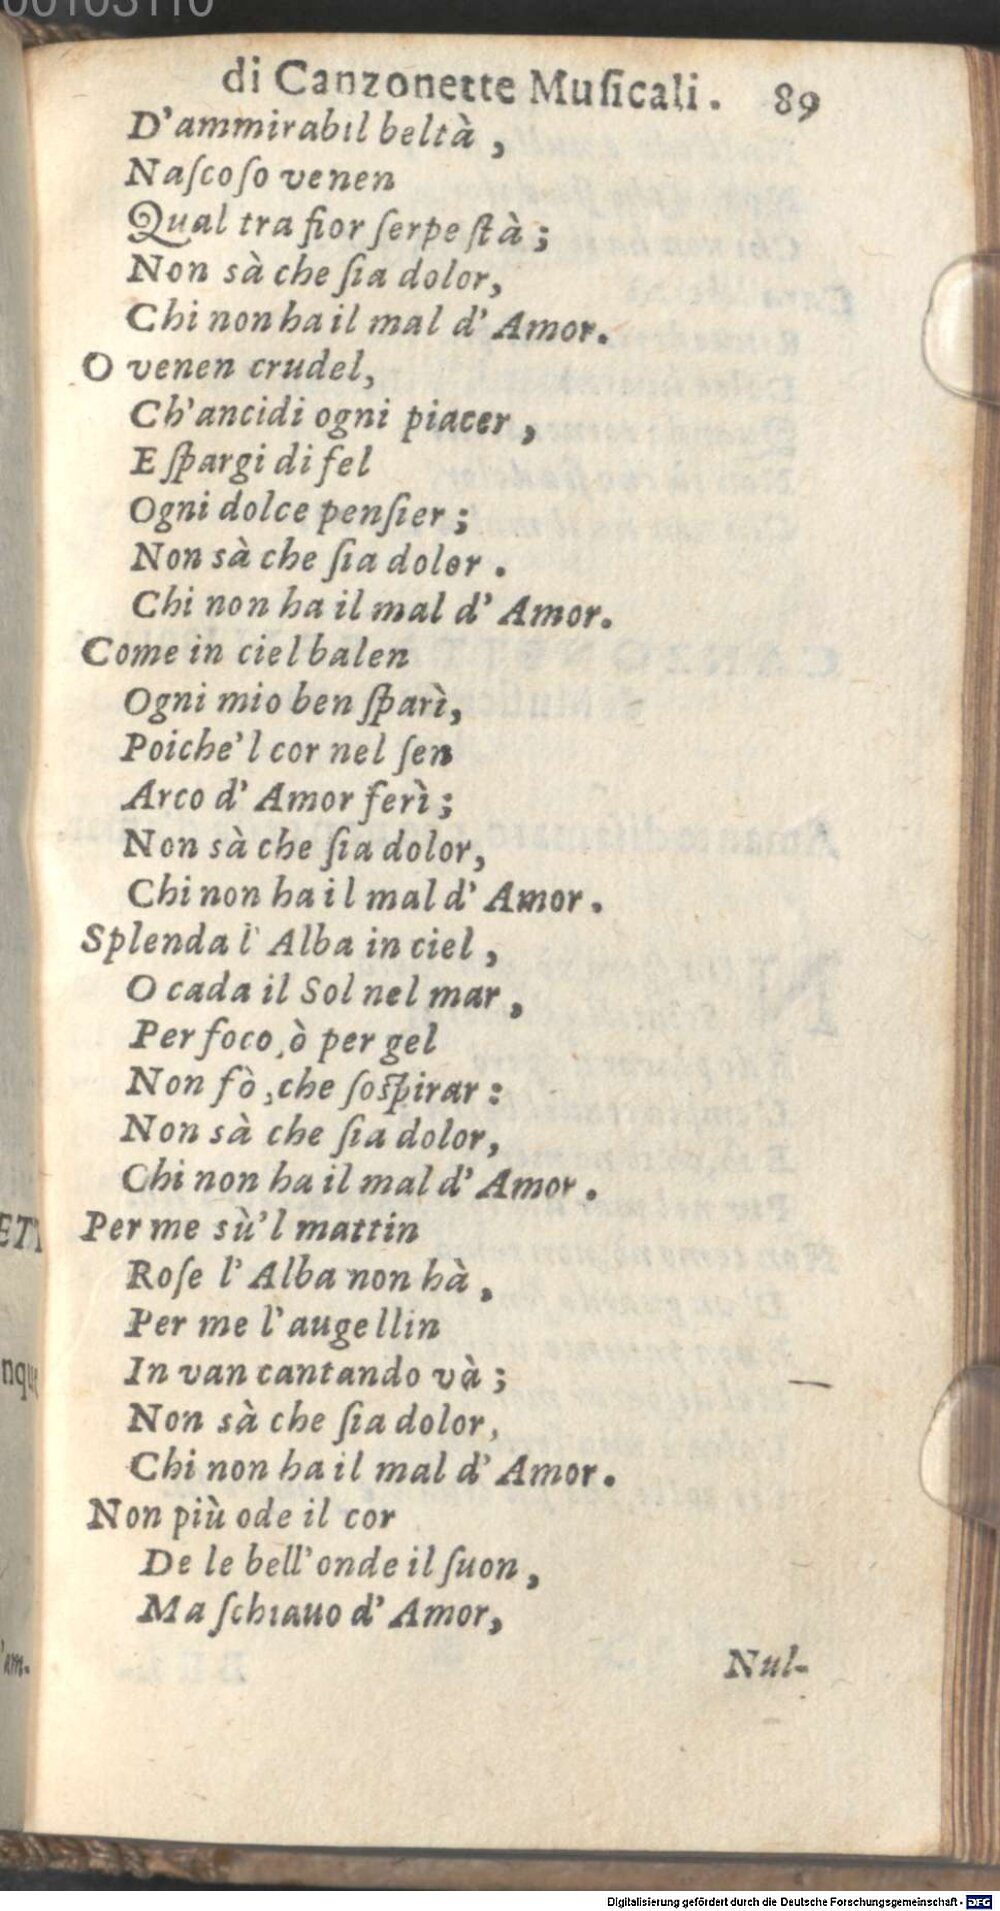 di Canzonette Muſicali. 89
D'ammirabil beltà,
Naſcoſo venen
Qual tra fior ſerpe ſtà;
Non sà che ſia dolor,
Chi non ha il mal d'Amor.
O venen crudel,
Ch'ancidi ogni piacer,
E ſpargi di fel
Ogni dolce penſier;
Non sà che ſia dolor.
Chi non ha il mal d'Amor.
Come in ciel balen
Ogni mio ben ſparì,
Poiche'l cor nel ſen
Arco d'Amor ferì;
Non sà che ſia dolor,
Chi non ha il mal d'Amor.
Splenda l'Alba in ciel,
O cada il Sol nel mar,
Per foco, ò per gel
Non fò, che ſoſpirar:
Non sà che ſia dolor,
Chi non ha il mal d'Amor.
Per me sù'l mattin
Roſe l'Alba non hà,
Per me l'augellin
In van cantando và;
Non sà che ſia dolor,
Chi non ha il mal d'Amor.
Non più ode il cor
De le bell'onde il ſuon,
Ma ſchiauo d'Amor,
Nul-
Digitalisierung gefördert durch die Deutsche Forschungsgemeinschaft - DFG